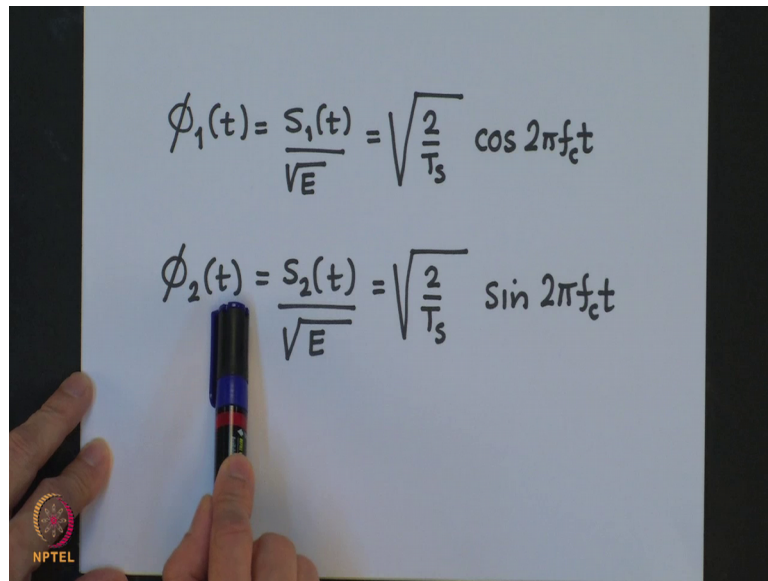 ϕ₁(t) = S₁(t)/√E = √(2/Tₛ) cos 2πf꜀t
ϕ₂(t) = S₂(t)/√E = √(2/Tₛ) sin 2πf꜀t
NPTEL